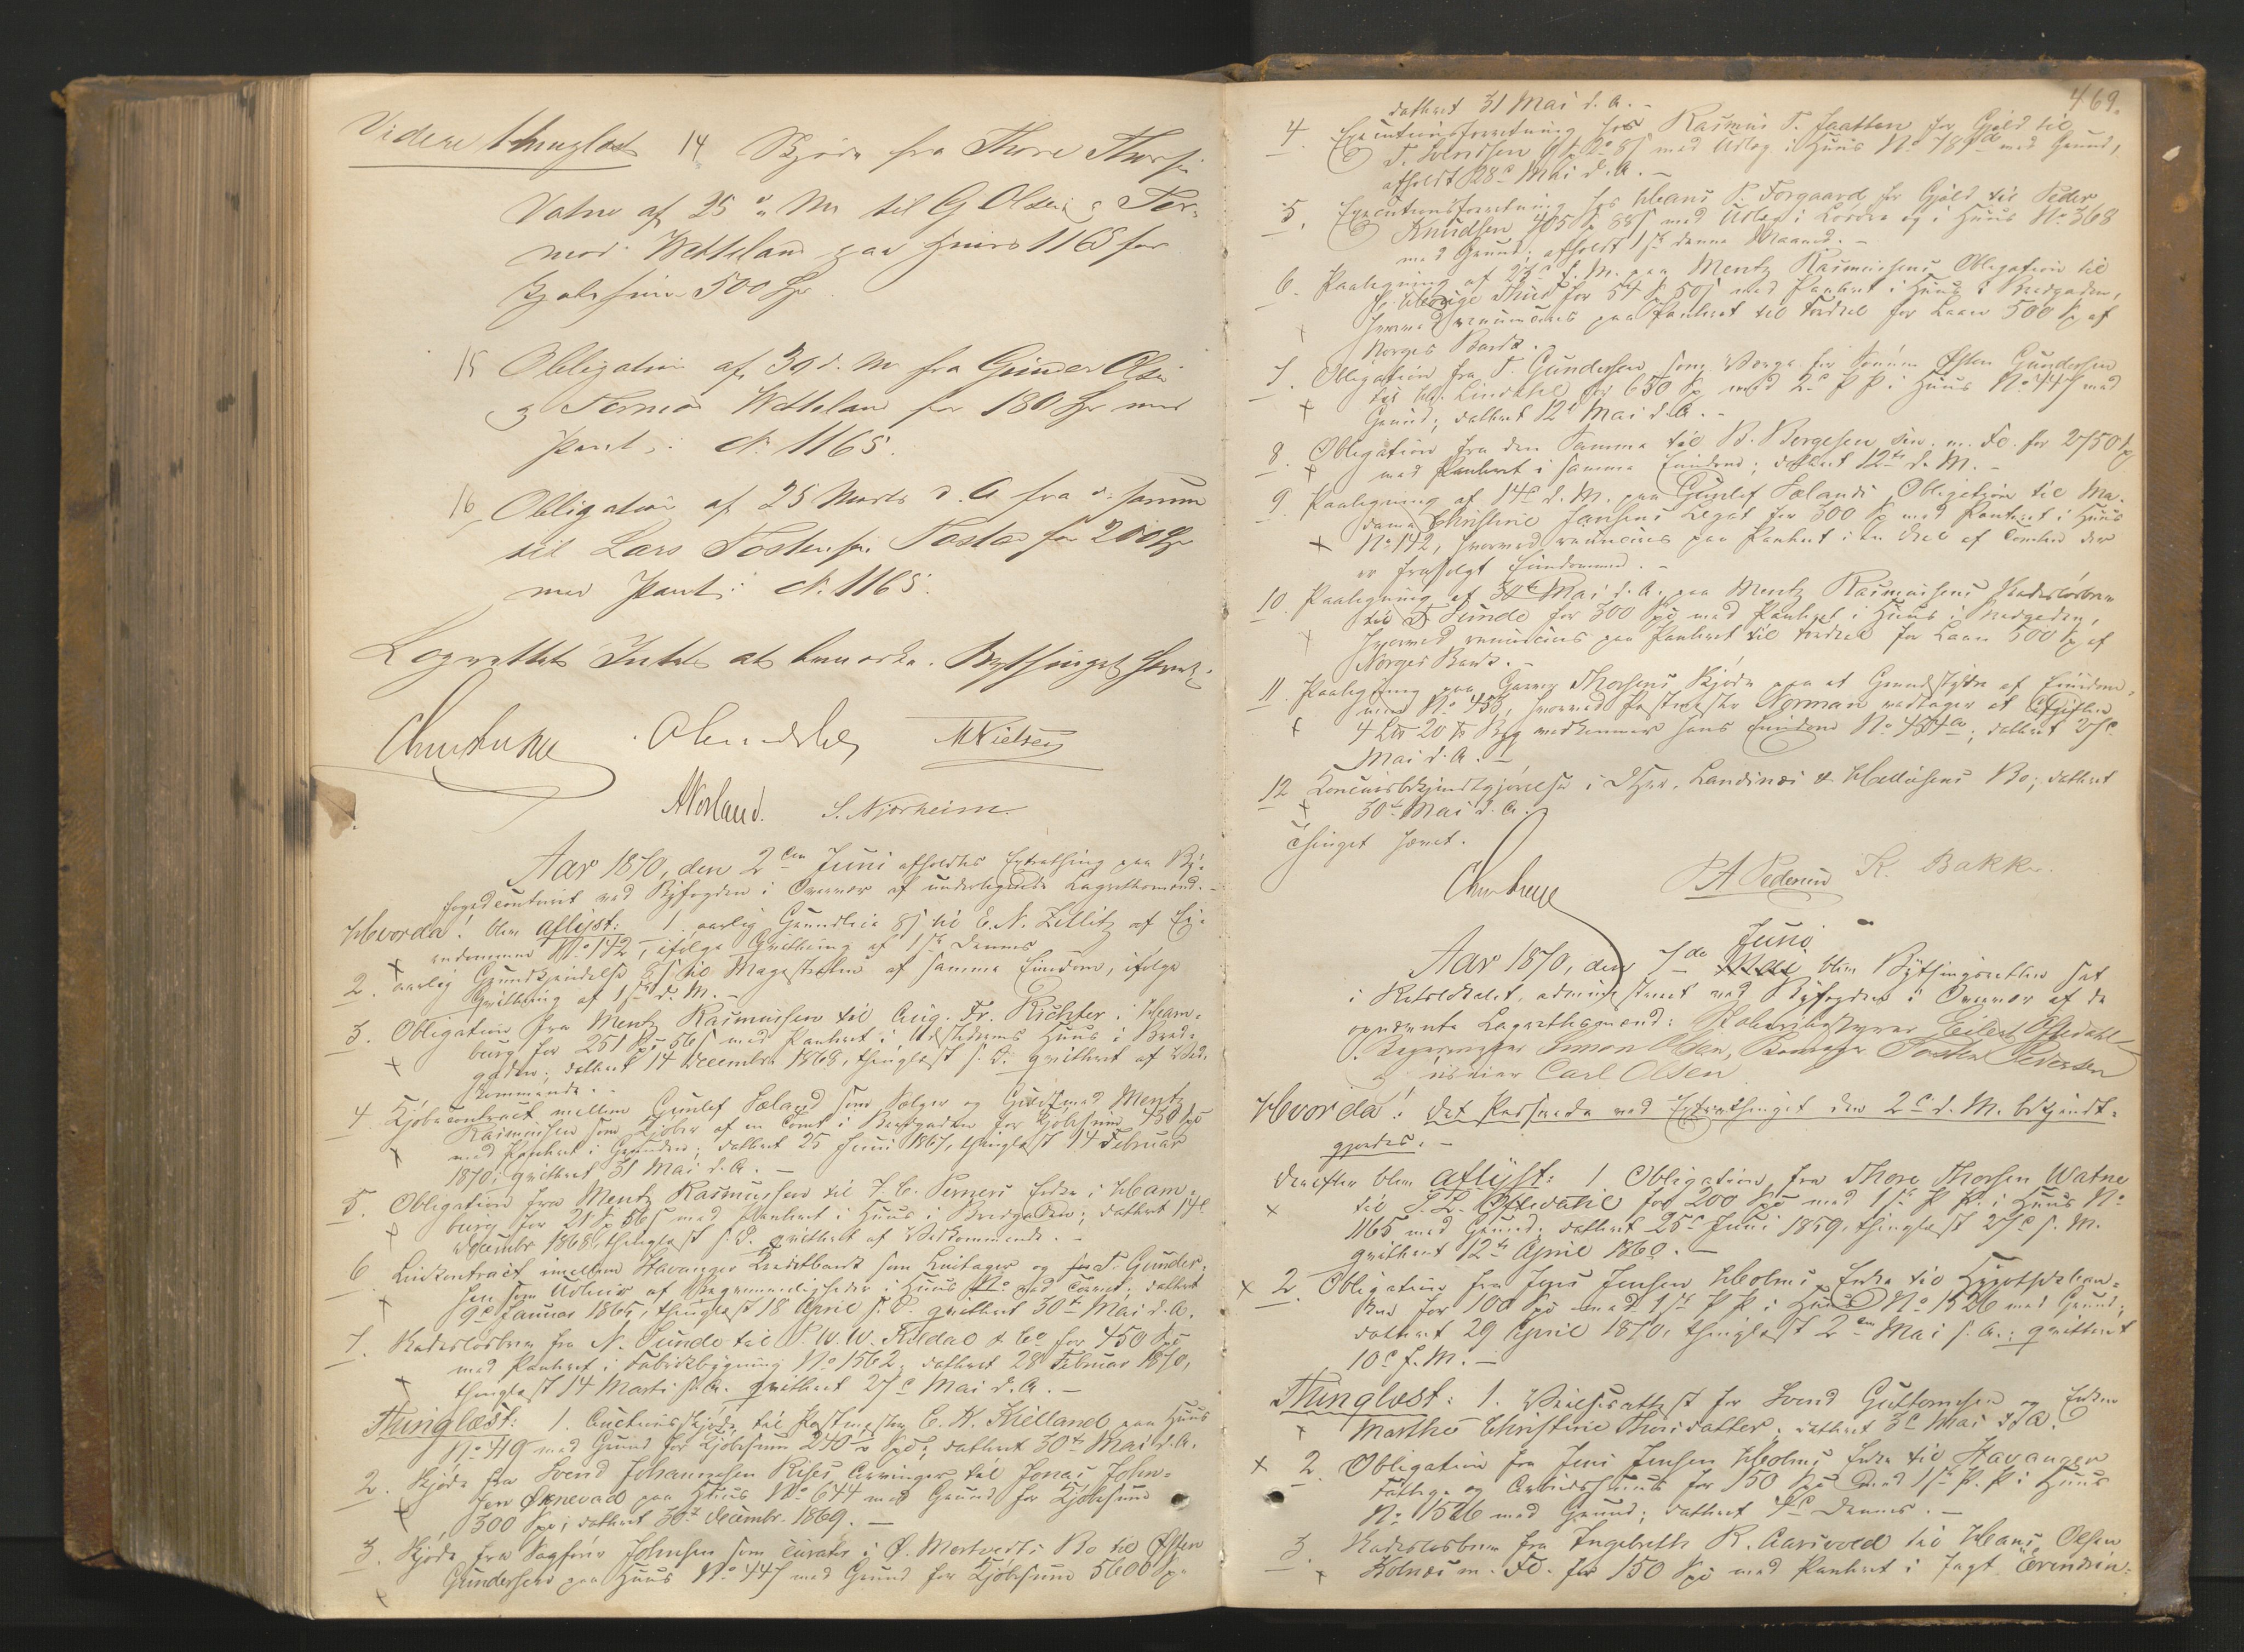 Videre thinglæst 14 Skjøde fra Thore Thorsen
Vatne af 25 d. M. til G Olsen & Tor-
mod Wetteland paa Huus 1165 for
Kjøbesum 500 Spd
15 Obligation af 30 d. M. fra Gunder Olsen
& Tormod Wetteland for 180 Spd med
Pant i No 1165.
16 Obligation af 25 Marts d. A. fra de samme
til Lars Tostensen Tastad for 200 Spd
med Pant i No 1165.
Lagrettet Intet at bemærke. Bythinget hævet.
M Nielsen
A Norland. S. Njærheim.
Aar 1870, den 2den Juni afholdtes Extrathing paa By-
fogedcontoiret ved Byfogden i Overvær af undertegnede Lagrettesmænd.-
Hvorda! blev aflyst: 1. aarlig Grundleie 8 s til C. N. Zetlitz af Ei-
endommen No 142, ifølge Qvittering af 1ste dennes
2. aarlig Grundkjendelse til Magistraten af samme Eiendom, ifølge
Qvittering af 1ste d. M. -
3. Obligation fra Mentz Rasmussen til Aug. Fr. Richter i Ham-
burg for 251 Spd 56 s med Panteret i Udstederens Huus i Bred-
gaden; dateret 14 December 1868, thinglæst s. D. qvitteret af Ved-
kommende. -
4. Kjøbecontract mellem Gunlef Sæland som Sælger og Mentz
Rasmussen som Kjøber af en Tomt i Bredgaden for Kjøbesum 430 Spd
med Panteret i Grunden; dateret 25 Juni 1867, thinglæst 14 Februar
1870; qvitteret 31 Mai d. A. -
5. Obligation fra Mentz Rasmussen til J. C. Perners Enke i Ham-
burg for 21 Sp 56 s med Panteret i Huus i Bredgaden; dateret 14de
December 1868, thinglæst s. D. qvitteret af Vedkommende. -
6 Leiekontract imellem Stavanger Kreditbank som Leietager og T. Gunder-
sen som Udleier af Beqvemmeligheder i Huus No ved Torvet; dateret
9de Januar 1865, thinglæst 18 April s. A. qvitteret 30te Mai d. A.
7. Kadesløsbrev fra N. Sunde til P. W. W. Kildal & Co for 450 Spd
med Panteret i Fabrikbygning No 1562; dateret 28 Februar 1870,
thinglæst 14 Marts s. A. qvitteret 27de Mai d. A. -
Thinglæst: 1. Auctionsskjøde til Postmester C. K. Kielland paa Huus
No 419 med Grund for Kjøbesum 240 Spd; dateret 30te Mai d. A.
2. Skjøde fra Svend Johannesen Rises Arvinger til Jonas John-
sen Øxnevad paa Huus No 644 med Grund for Kjøbesum
300 Spd; dateret 30te Decembr. 1869. -
3. Skjøde fra Sagfører Johnsen som Curator i O. Mostvedts Bo til Østen
Gundersen paa Huus No 447 med Grund for Kjøbesum 5600 Sp.
469.
dateret 31 Mai d. A. -
4. Executionsforretning hos Rasmus T. Faatten for Gjeld til
T. Svendsen med Udlæg i Huus No 787 med Grund,
afholdt 28de Mai d. A. -
5. Executionsforretning hos Hans P. Torgaard for Gjæld til Peder
Knudsen 405 Sp 88 s med Udlæg i Løsøre og i Huus No 368
med Grund; afholdt 1ste denne Maaned. -
6. Paategning af f. M. paa Mentz Rasmussens Obligation til
for 54 Sp 50 s med Panteret i Huus i Bredgaden,
hvorved renunceres paa Panteret til Fordeel for Laan 500 Sp af
Norges Bank.
7. Obligation fra T. Gundersen som Værge for Sønnen Østen Gundersen
til Lindahl for 650 Sp med 2de P. P. i Huus No 447 med
Grund; dateret 12te Mai d. A. -
8. Obligation fra den Samme til B. Bergesen sen. m. Fl. for 2750 Sp
med Panteret i samme Eiendom; dateret 12te d. M. -
9. Paategning af 14de d. M. paa Gunlef Sælands Obligation til Ma-
dame Christine Jansens Legat for 300 Sp med Panteret i Huus
No 142, hvorved renunceres paa Panteret i en Deel af Tomten der
er frasolgt Eiendommen. -
10. Paategning af Mai d. A. paa Mentz Rasmussens Kadesløsbrev
til Sunde for 300 Spd med Panteret i Huus i Bredgaden,
hvorved renunceres paa Panteret til Fordeel for Laan 500 Sp af
Norges Bank. -
11. Paategning paa Thorsens Skjøde paa et Grundstykke af Eiendom-
men No 453, hvorved Postmester Norman vedtager at Afgiften
4 20 Byg vedkommer hans Eiendom No 454a; dateret 27de
Mai d. A. -
12 Concursbekjendtgjørelse i Landsnæs & Hallesens Bo; dateret
30te Mai d. A.
Thinget hævet.
P A Pedersen K. Bakke.
Aar 1870, den 7de Juni blev Bythingsretten sat
i Retslokalet, administreret ved Byfogden i Overvær af de
opnævnte Lagrettesmænd: Skolebestyrer Eilert Oftedahl
Bagermester Simon Olsen, Tosten Pedersen
og Carl Olsen
Hvorda! det Passerede ved Extrathinget den 2de d. M. bekjendt-
gjordes. -
Derefter blev aflyst: 1. Obligation fra Thore Thorsen Watne
til S. L. Oftedahl for 200 Spd med 1ste P. P. i Huus No
1165 med Grund; dateret 25de Juni 1859, thinglæst 27de s. M.
qvitteret 12te April 1860. -
2. Obligation fra Jens Jensen Holms Enke til Hypothekban-
ken for 100 Spd med 1ste P. P. i Huus No 1526 med Grund;
dateret 29 April 1870, thinglæst 2den Mai s. A.; qvitteret
10de f. M. -
Thinglæst: 1. Vielsesattest for Svend Guttormsen og Enken
Marthe Christine Thorsdatter; dateret 3de Mai d. A.
2. Obligation fra Jens Jensen Holms Enke til Stavanger
Fattige og Arbeidshuus for 150 Spd med 1ste P. P. i Huus
No 1526 med Grund; dateret 4de dennes. -
3. Kadesløsbrev fra Ingebreth R. Aarsvold til Hans Olsen
Kolnæs m. Fl. for 150 Spd med Panteret i Jagt